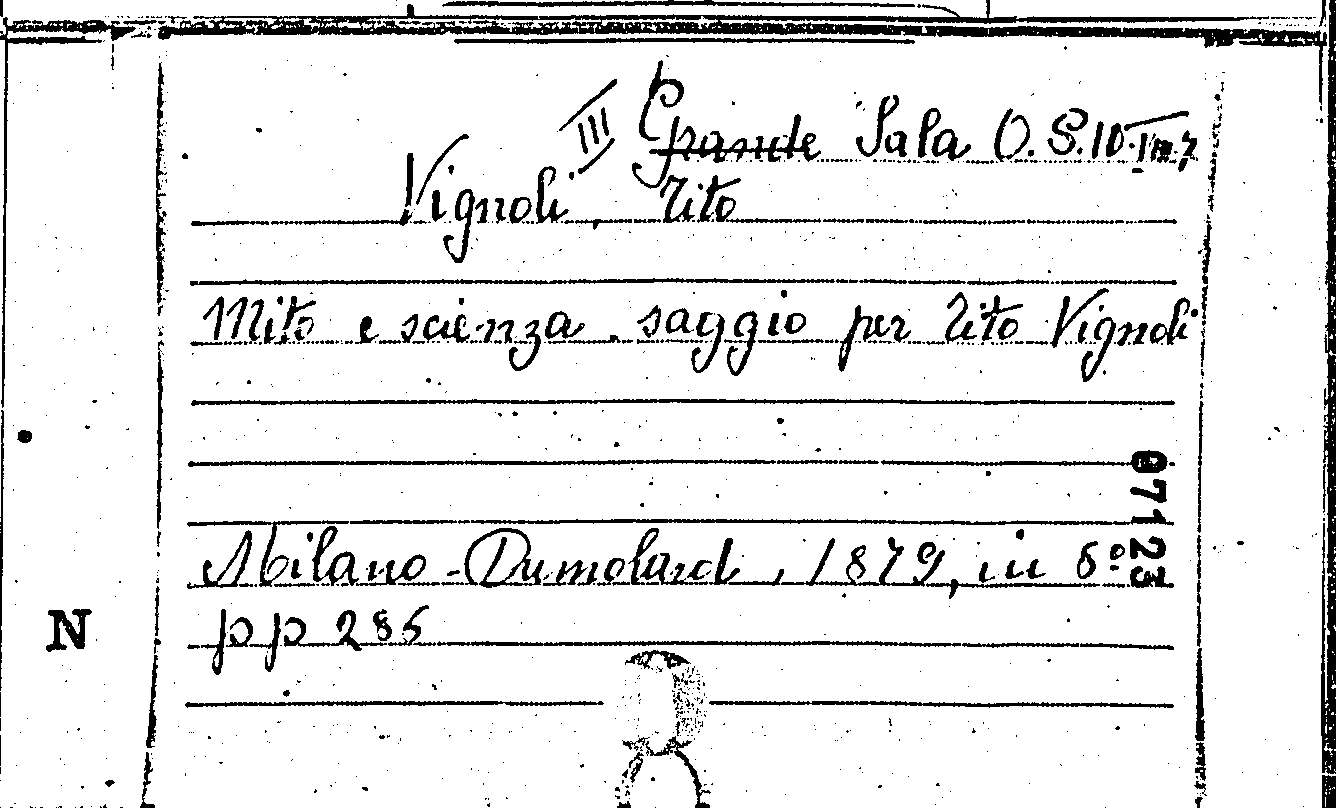 III Grande Sala O. S. 10.
Vignoli, Tito
Mito e scienza. saggio per Tito Vignoli
07123
Milano - Dumolard, 1879, in 8º
pp 285
N